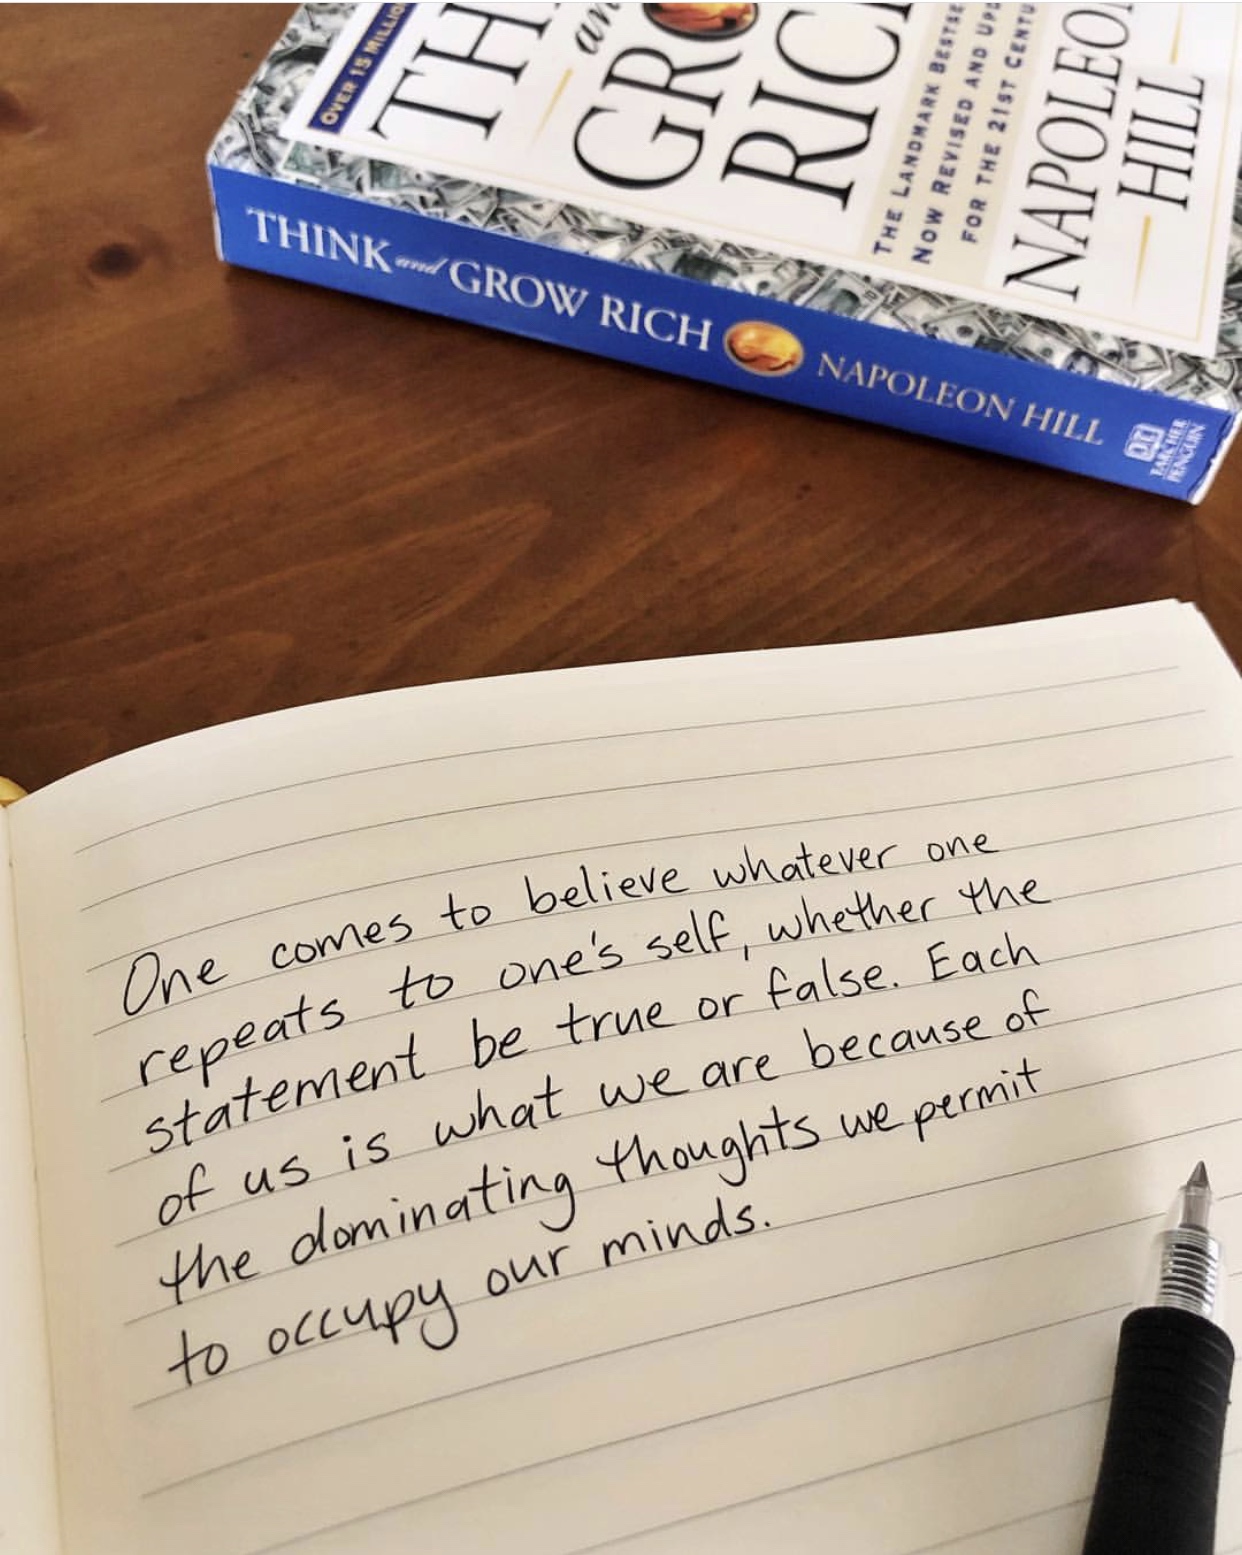 OVER 15 MILLIO
TH
an
GRO
RICH
THE LANDMARK BESTSE
NOW REVISED AND UPD
FOR THE 21ST CENTU
NAPOLEON
HILL
THINK and GROW RICH NAPOLEON HILL
TARCHER
PENGUIN
One comes to believe whatever one
repeats to one's self, whether the
statement be true or false. Each
of us is what we are because of
the dominating thoughts we permit
to occupy our minds.